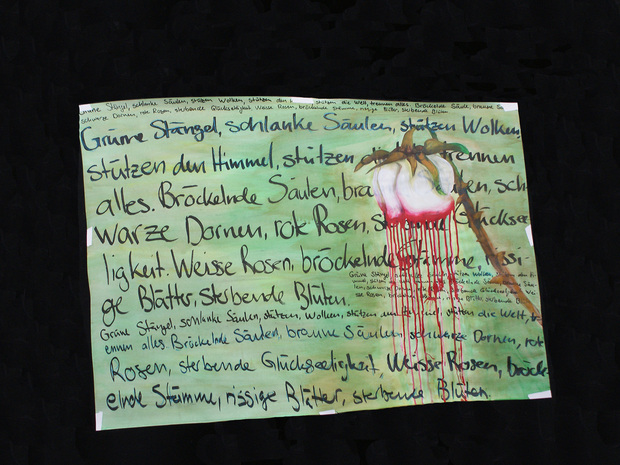 Stängel, schlanke Säulen, stützen Wolken, stützen den stützen die Welt, trennen alles. Bröckelnde Säule, braune Sä
schwarze Dornen, rote Rosen, sterbende Glückseligkeit. Weisse Rosen, bröckelnde Stämme, rissige Blätter, sterbende Blüten
Grüne Stängel, schlanke Säulen, stützen Wolken,
stützen den Himmel, stützen rennen
alles. Bröckelnde Säulen, bra ulen, sch-
warze Dornen, rote Rosen, sterbende Glücksee
ligkeit. Weisse Rosen, bröckelnde Stämme, rissi-
ge Blätter, sterbende Blüten.
Grüne Stängel, schlanke Säulen, stützen Wolken, stützen den Himmel, stützen die Welt, tr
ennen alles Bröckelnde Säulen, braune Säulen, schwarze Dornen, rote
Rosen, sterbende Glückseeligkeit, Weisse Rosen, bröck
elnde Stämme, rissige Blätter, sterbende Blüten.